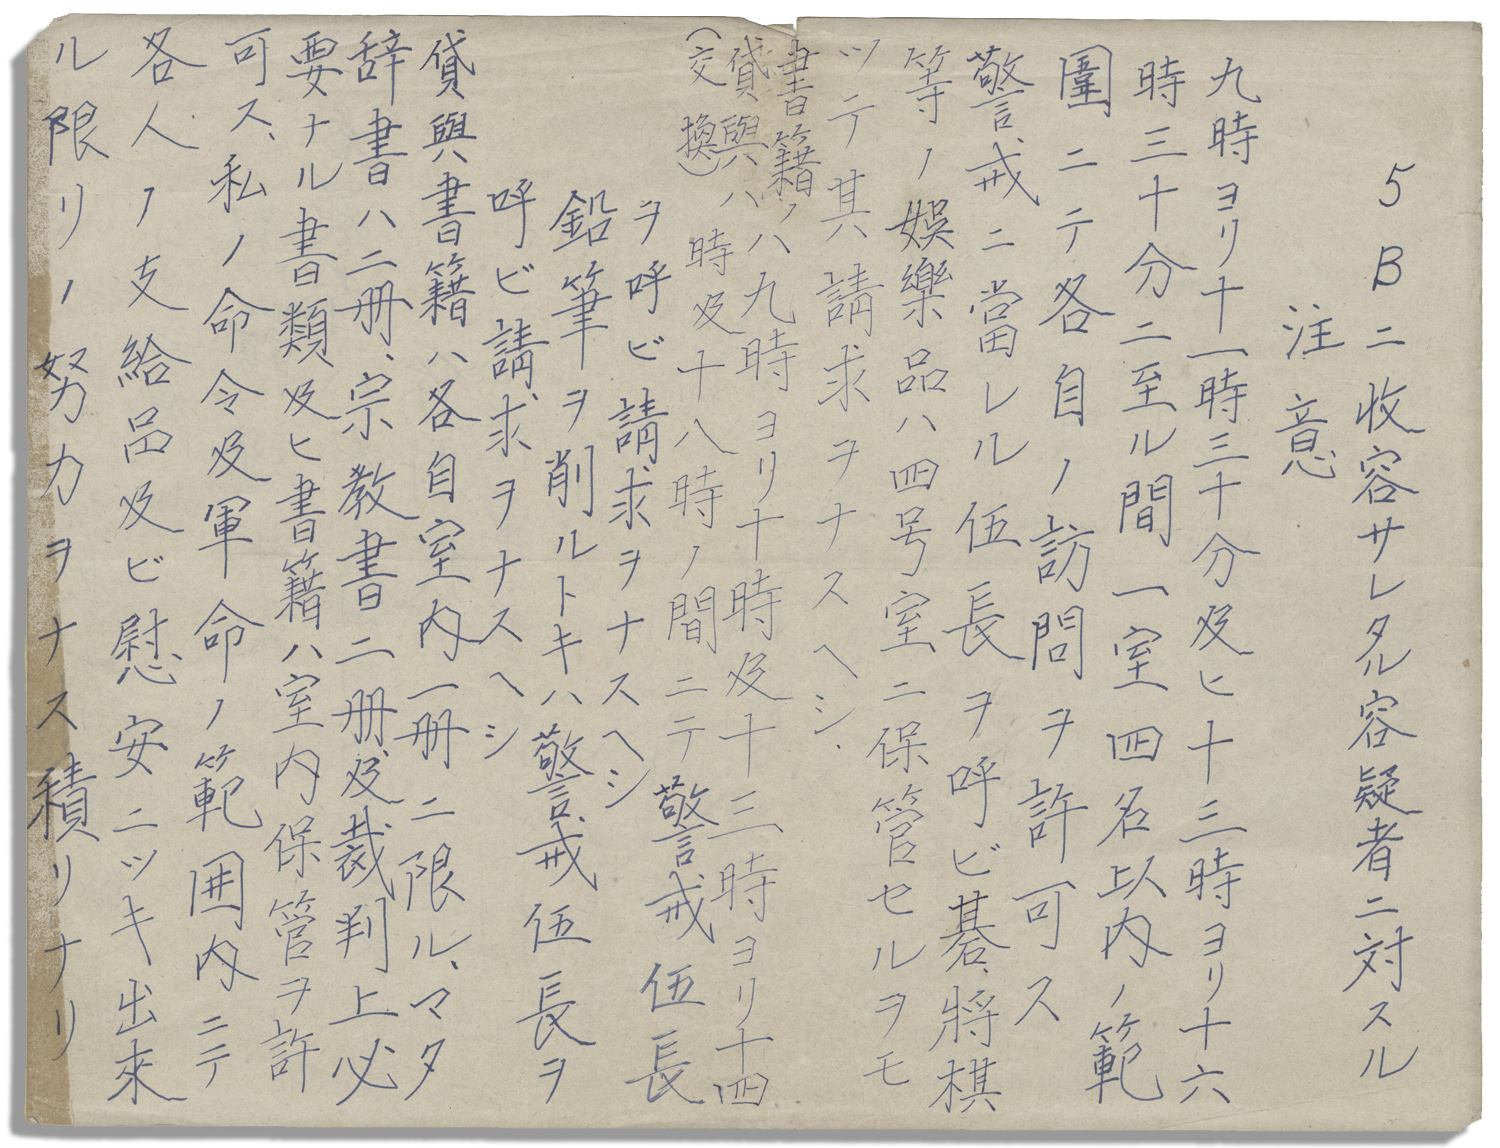 5Bニ收容サレタル容疑者ニ対スル
注意
九時ヨリ十一時三十分及ヒ十三時ヨリ十六
時三十分ニ至ル間一室四名以内ノ範
圍ニテ各自ノ訪問ヲ許可ス
警戒ニ當レル伍長ヲ呼ビ碁、將棋
等ノ娯樂品ハ四号室ニ保管セルヲモ
ツテ其請求ヲナスヘシ.
書籍ノ
貸與ハ八九時ヨリ十時及十三時ヨリ十四
(交換)ハ時及十八時ノ間ニテ警戒伍長
ヲ呼ビ請求ヲナスヘシ
鉛筆ヲ削ルトキハ警戒伍長ヲ
呼ビ請求ヲナスヘシ
貸與書籍ハ各自室内一冊ニ限ル、マタ
辞書ハ二冊、宗教書二冊及裁判上必
要ナル書類及ヒ書籍ハ室内保管ヲ許
可ス、私ノ命令及軍命ノ範囲内ニテ
各人ノ支給品及ビ慰安ニツキ出來
ル限リノ努力ヲナス積リナリ